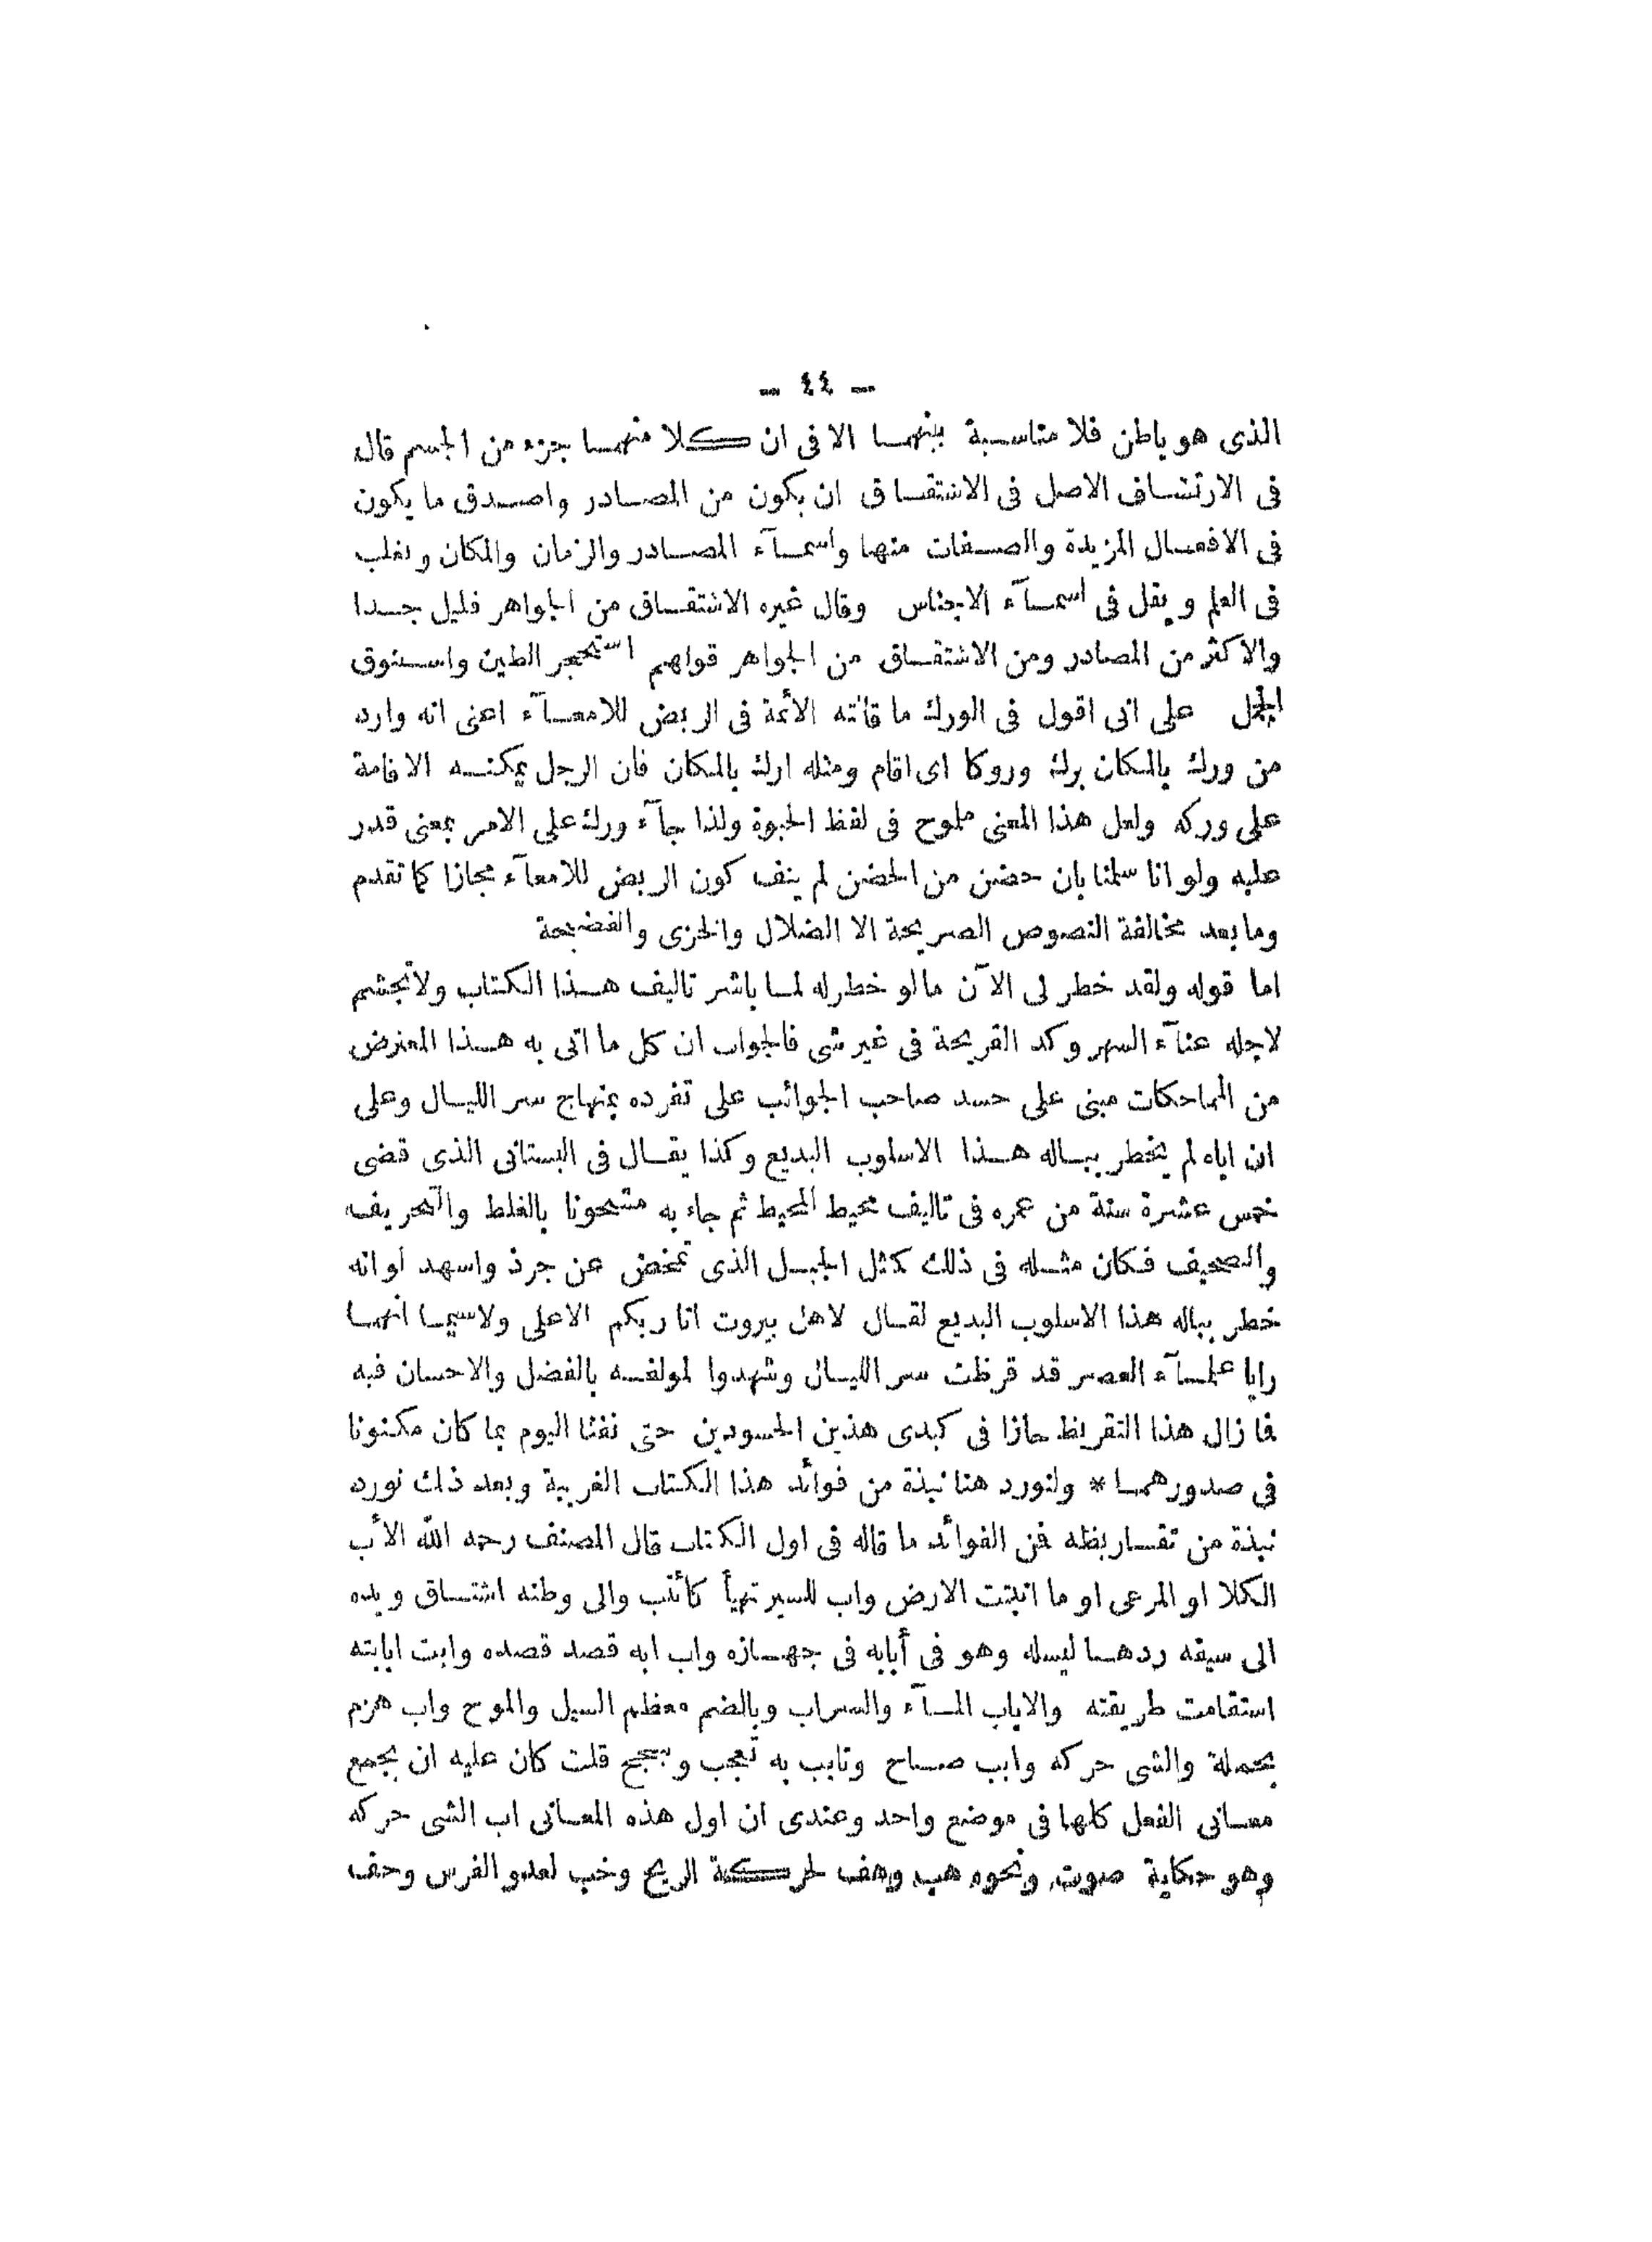 - ٤٤ -
الذى هو باطن فلا مناسبة بينهما الا فى ان كلا منهما بجزء من الجسم قال
فى الارتشاف الاصل فى الاشتقاق ان يكون من المصادر واصدق ما يكون
فى الافعال المزيدة والصفات منها واسمآء المصادر والزمان والمكان ويغلب
فى العلم ويقل فى اسمآء الاجناس وقال غيره الاشتقاق من الجواهر قليل جدا
والاكثر من المصادر ومن الاشتقاق من الجواهر قولهم استحجر الطين واستنوق
الجمل على انى اقول فى الورك ما قالته الأئمة فى الربض للامعآء اعنى انه وارد
من ورك بالمكان يرك وروكا اى اقام ومثله ارك بالمكان فان الرجل يمكنه الاقامة
على وركه ولعل هذا المعنى ملموح فى لفظ الحبوة ولذا جآء ورك على الامر بمعنى قدر
عليه ولو انا سلمنا بان حضن من الحضن لم ينف كون الربض للامعآء مجازا كما تقدم
وما بعد مخالفة النصوص الصريحة الا الضلال والخزى والفضيحة
اما قوله ولقد خطر لى الآن ما لو خطر له لما باشر تاليف هذا الكتاب ولا تجشم
لاجله عنآء السهر وكد القريحة فى غير شى فالجواب ان كل ما اتى به هذا المعترض
من المماحكات مبنى على حسد صاحب الجوائب على تفرده بمنهاج سر الليال وعلى
ان اباه لم يخطر بباله هذا الاسلوب البديع وكذا يقال فى البستانى الذى قضى
خمس عشرة سنة من عمره فى تاليف محيط المحيط ثم جاء به مشحونا بالغلط والتحريف
والتصحيف فكان مثله فى ذلك كمثل الجبل الذى تمخض عن جرذ واسهد لو انه
خطر بباله هذا الاسلوب البديع لقال لاهل بيروت انا ربكم الاعلى ولاسيما انهما
رايا علمآء العصر قد قرظت سر الليال وشهدوا لمولفه بالفضل والاحسان فيه
فما زال هذا التقريظ حازا فى كبدى هذين الحسودين حتى نفثا اليوم بما كان مكنونا
فى صدورهما * ولنورد هنا نبذة من فوائد هذا الكتاب الغريبة وبعد ذلك نورد
نبذة من تقاريظه فمن الفوائد ما قاله فى اول الكتاب قال المصنف رحمه الله الأب
الكلا او المرعى او ما انبتت الارض واب للسير تهيأ كأئتب والى وطنه اشتاق ويده
الى سيفه ردها ليسله وهو فى أبابه فى جهازه واب ابه قصد قصده وابت ابابته
استقامت طريقته والاباب المآء والسراب وبالضم معظم السيل والموج واب هزم
بحملة والشى حركه وابب صاح وتابب به تعجب وتبجح قلت كان عليه ان يجمع
معانى الفعل كلها فى موضع واحد وعندى ان اول هذه المعانى اب الشى حركه
وهو حكاية صوت ونحوه هب وهف لحركة الريح وخب لعدو الفرس وحف